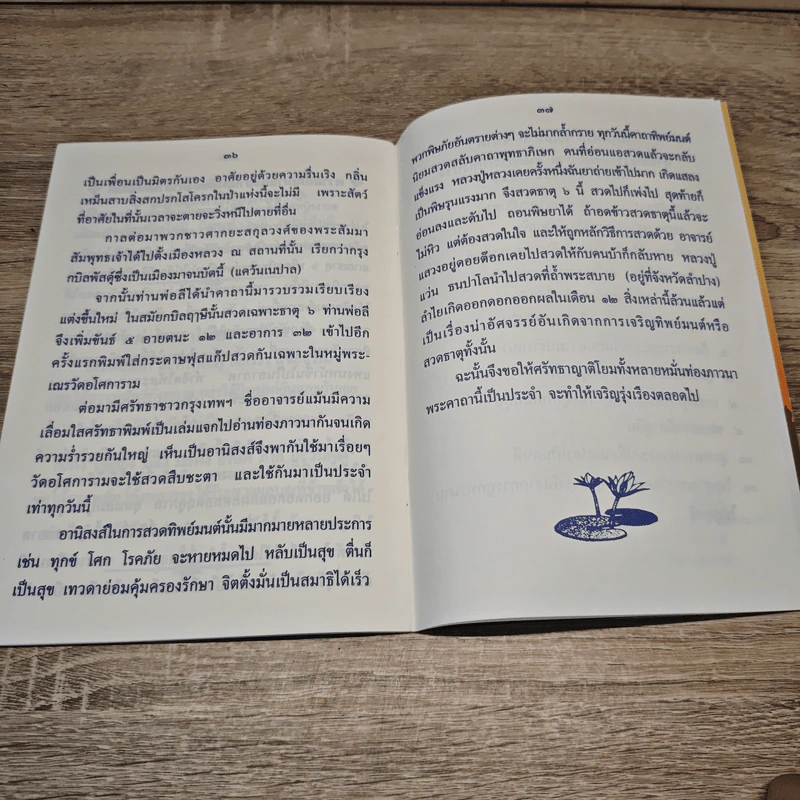 ๓๖
เป็นเพื่อนเป็นมิตรกันเอง อาศัยอยู่ด้วยความรื่นเริง กลิ่น
เหม็นสาบสิ่งสกปรกโสโครกในป่าแห่งนี้จะไม่มี เพราะสัตว์
ที่อาศัยในที่นั้นเวลาจะตายจะวิ่งหนีไปตายที่อื่น
กาลต่อมาพวกชาวศากยะสกุลวงศ์ของพระสัมมา
สัมพุทธเจ้าได้ไปตั้งเมืองหลวง ณ สถานที่นั้น เรียกว่ากรุง
กบิลพัสดุ์ซึ่งเป็นเมืองมาจนบัดนี้ (แคว้นเนปาล)
จากนั้นท่านพ่อลีได้นำคาถานี้มารวบรวมเรียบเรียง
แต่งขึ้นใหม่ ในสมัยกบิลฤาษีนั้นสวดเฉพาะธาตุ ๖ ท่านพ่อลี
จึงเพิ่มขันธ์ ๕ อายตนะ ๑๒ และอาการ ๓๒ เข้าไปอีก
ครั้งแรกพิมพ์ใส่กระดาษฟุสแก๊ปสวดกันเฉพาะในหมู่พระ-
เณรวัดอโศการาม
ต่อมามีศรัทธาชาวกรุงเทพฯ ชื่ออาจารย์แม้นมีความ
เลื่อมใสศรัทธาพิมพ์เป็นเล่มแจกไปอ่านท่องภาวนากันจนเกิด
ความร่ำรวยกันใหญ่ เห็นเป็นอานิสงส์จึงพากันใช้มาเรื่อยๆ
วัดอโศการามจะใช้สวดสืบชะตา และใช้กันมาเป็นประจำ
เท่าทุกวันนี้
อานิสงส์ในการสวดทิพย์มนต์นั้นมีมากมายหลายประการ
เช่น ทุกข์ โศก โรคภัย จะหายหมดไป หลับเป็นสุข ตื่นก็
เป็นสุข เทวดาย่อมคุ้มครองรักษา จิตตั้งมั่นเป็นสมาธิได้เร็ว
๓๗
พวกพิษภัยอันตรายต่างๆ จะไม่มากล้ำกราย ทุกวันนี้คาถาทิพย์มนต์
นิยมสวดสลับคาถาพุทธาภิเษก คนที่อ่อนแอสวดแล้วจะกลับ
แข็งแรง หลวงปู่หลวงเคยครั้งหนึ่งฉันยาถ่ายเข้าไปมาก เกิดแสลง
เป็นพิษรุนแรงมาก จึงสวดธาตุ ๖ นี้ สวดไปก็เพ่งไป สุดท้ายก็
อ่อนลงและดับไป ถอนพิษยาได้ ถ้าอดข้าวสวดธาตุนี้แล้วจะ
ไม่หิว แต่ต้องสวดในใจ และให้ถูกหลักวิธีการสวดด้วย อาจารย์
แสวงอยู่ดอยด็อกเคยไปสวดให้กับคนบ้าก็กลับหาย หลวงปู่
แว่น ธนปาโลนำไปสวดที่ถ้ำพระสบาย (อยู่ที่จังหวัดลำปาง)
ลำไยเกิดออกดอกออกผลในเดือน ๑๒ สิ่งเหล่านี้ล้วนแล้วแต่
เป็นเรื่องน่าอัศจรรย์อันเกิดจากการเจริญทิพย์มนต์หรือ
สวดธาตุทั้งนั้น
ฉะนั้นจึงขอให้ศรัทธาญาติโยมทั้งหลายหมั่นท่องภาวนา
พระคาถานี้เป็นประจำ จะทำให้เจริญรุ่งเรืองตลอดไป